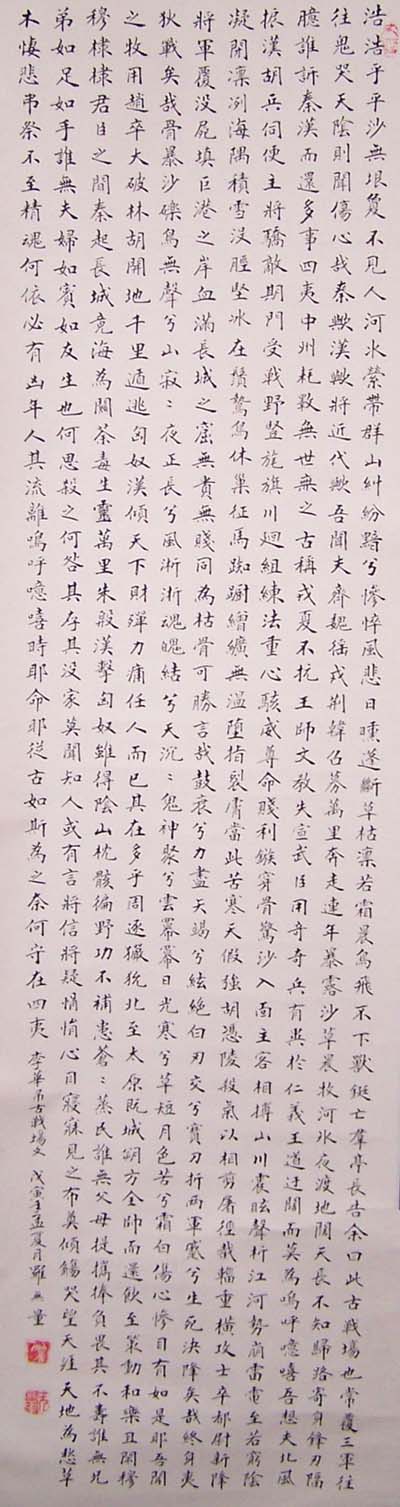 浩浩乎平沙無垠敻不見人河水縈帶群山糾紛黯兮慘悴風悲日曛蓬斷草枯凜若霜晨鳥飛不下獸鋌亡羣亭長告余曰此古戰場也常覆三軍往
往鬼哭天陰則聞傷心哉秦歟漢歟將近代歟吾聞夫齊魏徭戍荊韓召募萬里奔走連年暴露沙草晨牧河冰夜渡地闊天長不知歸路寄身鋒刃腷
臆誰訴秦漢而還多事四夷中州耗斁無世無之古稱戎夏不抗王師文教失宣武臣用奇奇兵有異於仁義王道迂闊而莫為嗚呼噫嘻吾想夫北風
振漠胡兵伺便主將驕敵期門受戰野豎旄旗川迴組練法重心駭威尊命賤利鏃穿骨驚沙入面主客相搏山川震眩聲析江河勢崩雷電至若窮陰
凝閉凜冽海隅積雪沒脛堅冰在鬚鷙鳥休巢征馬踟躕繒纊無溫墮指裂膚當此苦寒天假強胡憑陵殺氣以相剪屠徑截輜重橫攻士卒都尉新降
將軍覆沒屍填巨港之岸血滿長城之窟無貴無賤同為枯骨可勝言哉鼓衰兮力盡矢竭兮絃絕白刃交兮寶刀折兩軍蹙兮生死決降矣哉終身夷
狄戰矣哉骨暴沙礫鳥無聲兮山寂〻夜正長兮風淅淅魂魄結兮天沉〻鬼神聚兮雲冪冪日光寒兮草短月色苦兮霜白傷心慘目有如是耶吾聞
之牧用趙卒大破林胡開地千里遁逃匈奴漢傾天下財殫力痡任人而已其在多乎周逐獫狁北至太原既城朔方全師而還飲至策勳和樂且閑穆
穆棣棣君臣之間秦起長城竟海為關荼毒生靈萬里朱殷漢擊匈奴雖得陰山枕骸徧野功不補患蒼〻蒸民誰無父母提攜捧負畏其不壽誰無兄
弟如足如手誰無夫婦如賓如友生也何恩殺之何咎其存其沒家莫聞知人或有言將信將疑悁悁心目寢寐見之布奠傾觴哭望天涯天地為悲草
木悽悲弔祭不至精魂何依必有凶年人其流離嗚呼噫嘻時耶命耶從古如斯為之奈何守在四夷 李華吊古戰場文 戊寅年孟夏月羅無量